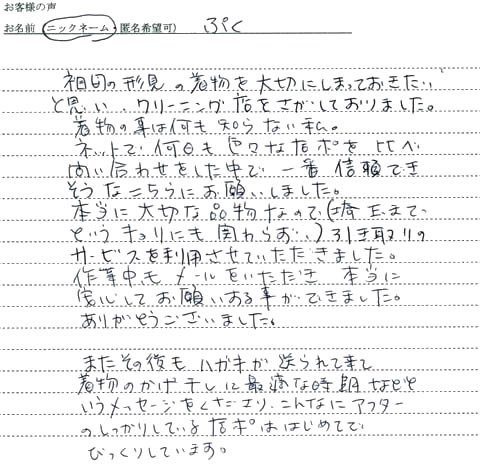 お客様の声
お名前(ニックネーム・匿名希望可) ぷく
祖母の形見の着物を大切にしまっておきたい
と思い、クリーニング店をさがしておりました。
着物の事は何も知らない私。
ネットで何日も色々な店ポを比べ
問い合わせをした中で一番信頼でき
そうなこちらにお願いしました。
本当に大切な品物なので(埼玉まで
というキョリにも関わらず、)引き取りの
サービスを利用させていただきました。
作業中もメールをいただき 本当に
安心してお願いある事ができました。
ありがとうございました。
またその後も ハガキが送られて来て
着物のかげ干しに最適な時期などと
いうメッセージをくださり、こんなにアフター
のしっかりしている店ポははじめてで
びっくりしています。